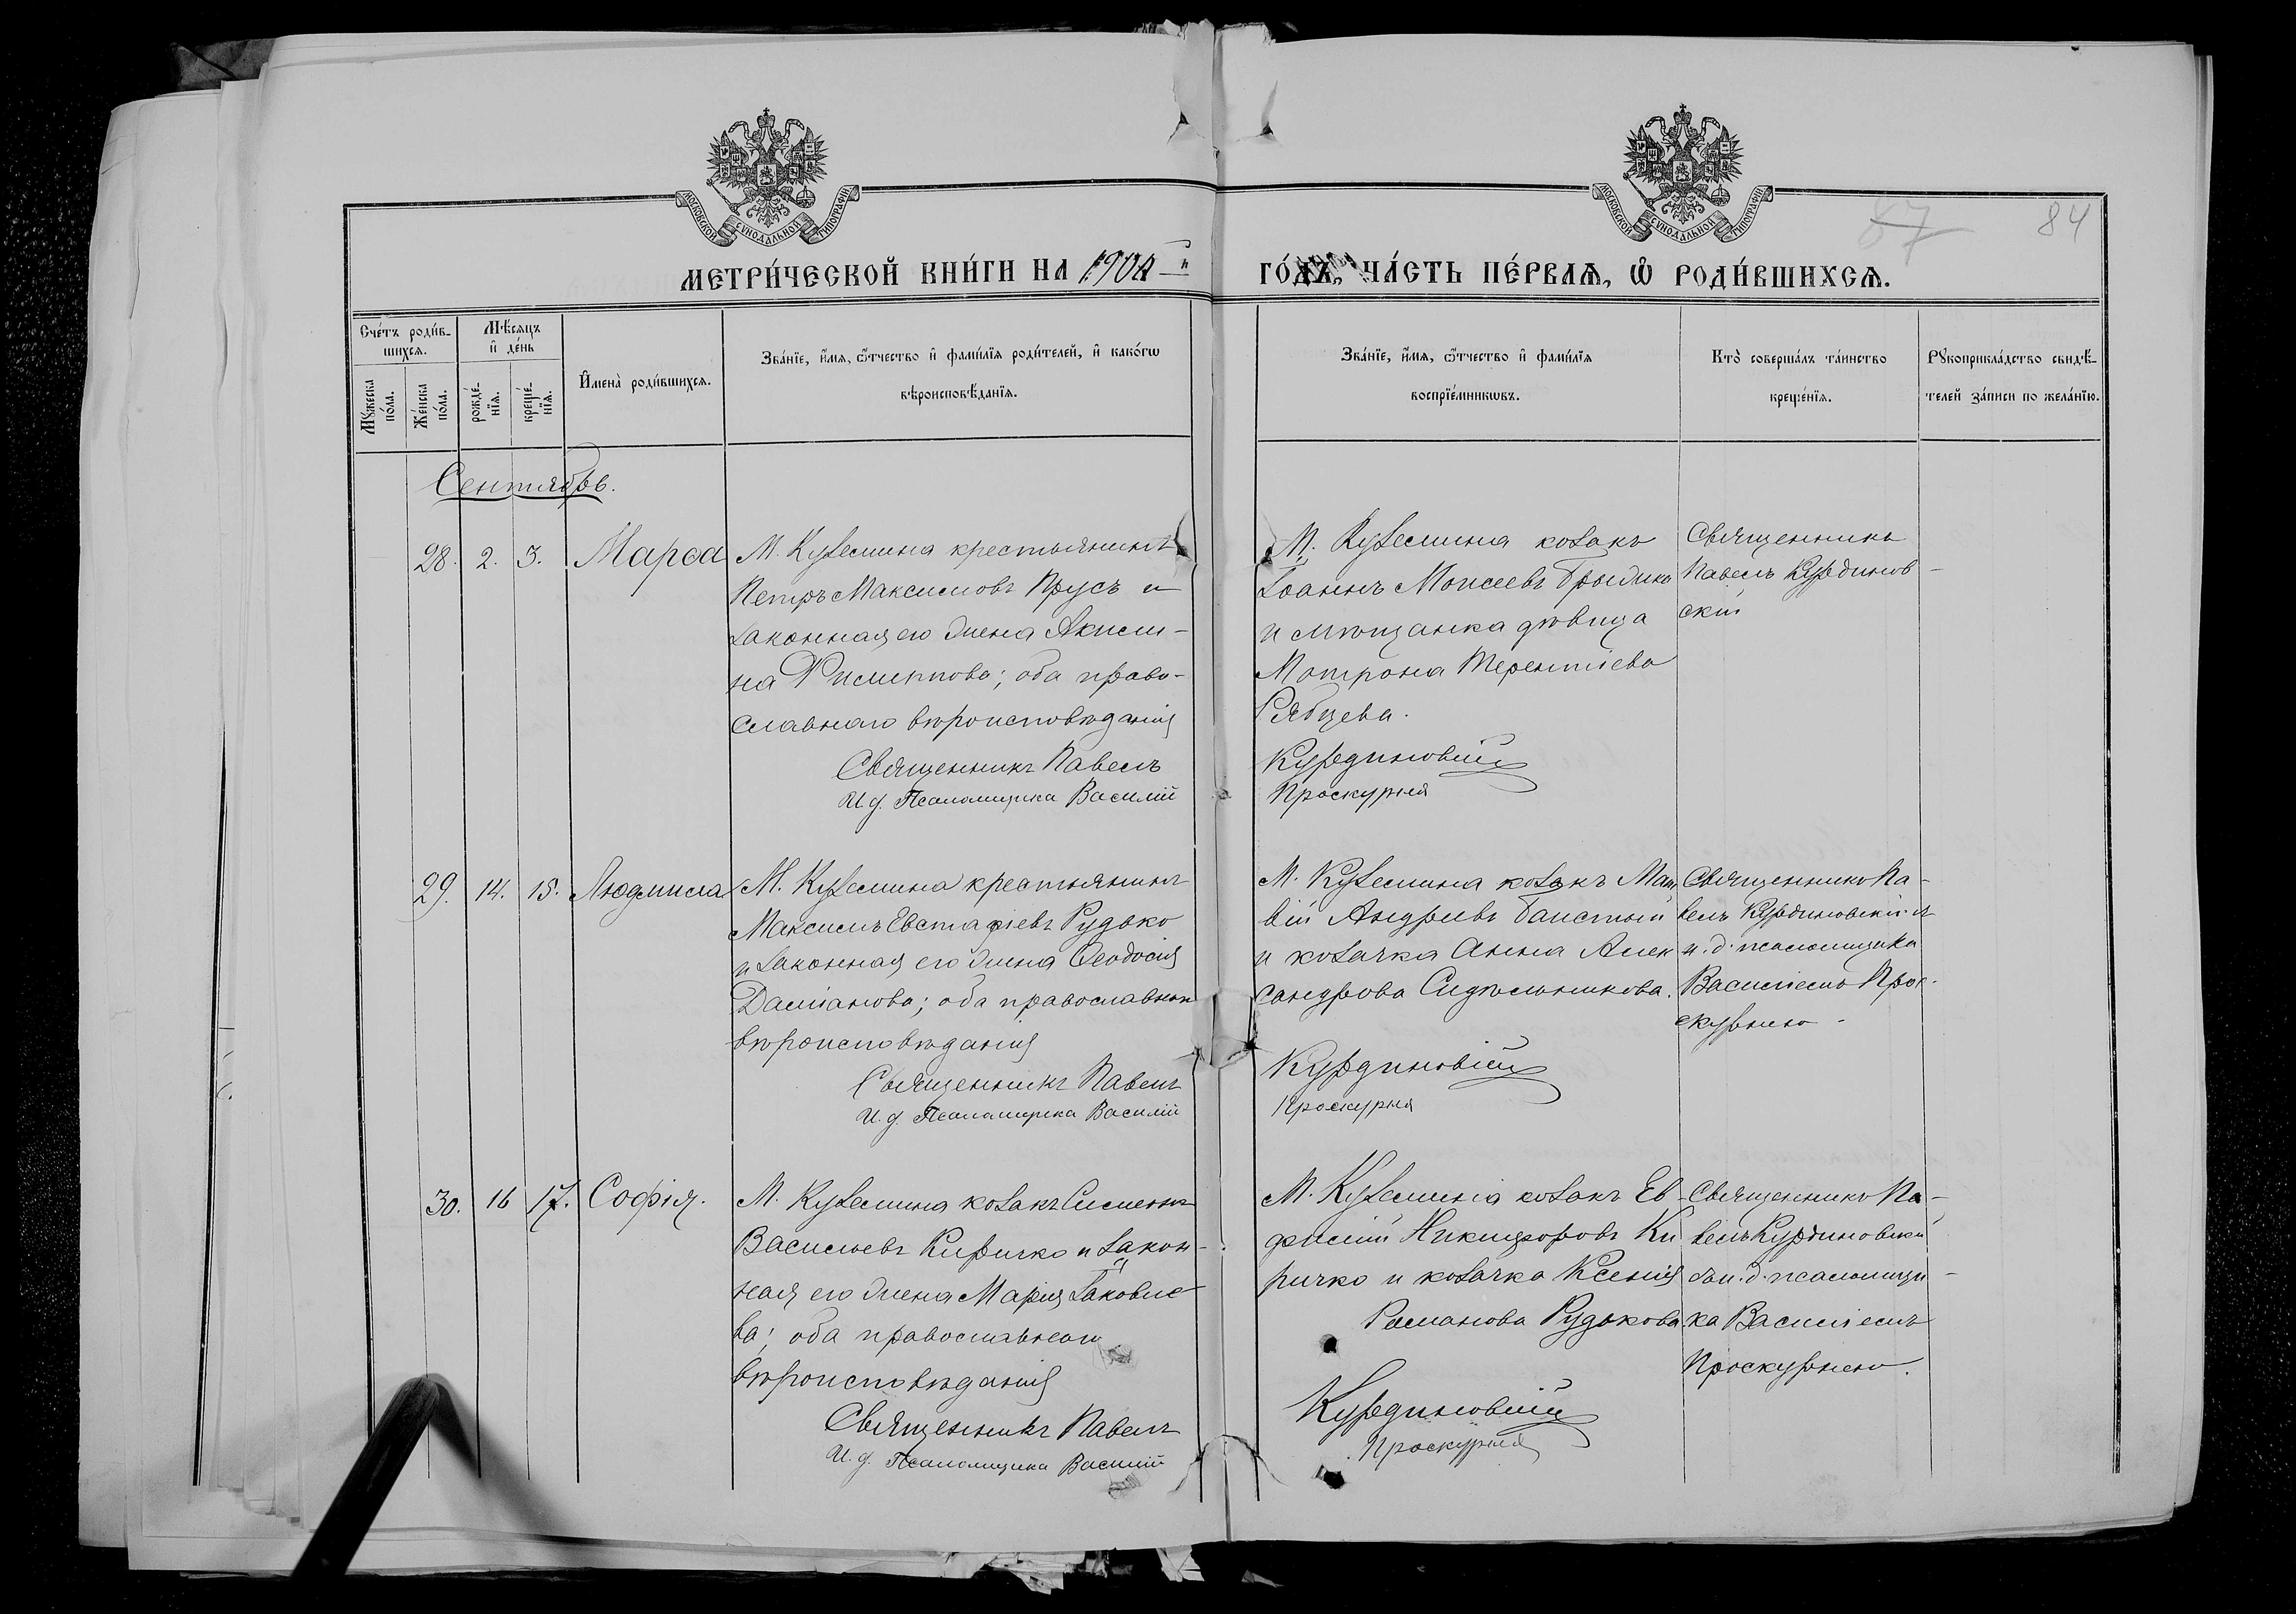 67 84
МОСКОВСКОЙ СУНОДАЛЬНОЙ ТИПОГРАФІИ
МОСКОВСКОЙ СУНОДАЛЬНОЙ ТИПОГРАФІИ
МЕТРИ́ЧЕСКОЙ КНИ́ГИ НА 190 ГО́ДЪ, ЧА́СТЬ ПЕ́РВАѦ, Ѡ҆ РОДИ́ВШИХСѦ.
Сче́тъ роди́в-
шихсѧ.
Мꙋ́жеска
по́ла.
Же́нска
по́ла.
Мѣ́сѧцъ
и҆ де́нь
рожде́-
нїѧ.
креще́-
нїѧ.
И҆мена̀ роди́вшихсѧ.
Зва́нїе, и҆́мѧ, ѻ҆́тчество и҆ фами́лїѧ роди́телей, и҆ како́гѡ
вѣроисповѣ́данїѧ.
Зва́нїе, и҆́мѧ, ѻ҆́тчество и҆ фами́лїѧ
воспрїе́мникѡвъ.
Кто̀ соверша́лъ та́инство
креще́нїѧ.
Рꙋкоприкла́дство свидѣ́-
телей за́писи по жела́нїю.
Сентябрь.
28. 2. 3. Марѳа
М. Куземина крестьянинъ
Петръ Максимовъ Прусъ и
законная его жена Акили-
на Филиппова; оба право-
славнаго вѣроисповѣданія
Священникъ Павелъ
И. д. Псаломщика Василій
М. Куземина козакъ
Іоаннъ Моисеевъ Брыдико
и мѣщанка дѣвица
Матрона Терентіева
Рябцева.
Курдиновскій
Проскурня
Священникъ
Павелъ Курдинов-
скій
29. 14. 15. Людмила
М. Куземина крестьянинъ
Максимъ Евстафіевъ Рудько
и законная его жена Ѳеодосія
Даміанова; оба православнаго
вѣроисповѣданія
Священникъ Павелъ
И. д. Псаломщика Василій
М. Куземина козакъ Мат
вій Андреевъ Баистый
и козачка Анна Алек
сандрова Сидѣльникова.
Курдиновскій
Проскурня
Священникъ Па-
велъ Курдиновскій съ
и. д. псаломщика
Василіемъ Прос-
курнею
30. 16 17. Софія.
М. Куземина козакъ Симеонъ
Васильевъ Киричко и закон-
ная его жена Марія Іаковле-
ва; оба православнаго
вѣроисповѣданія
Священникъ Павелъ
И. д. Псаломщика Василій
М. Куземина козакъ Ев-
фимій Никифоровъ Ки
ричко и козачка Ксенія
Романова Рудькова
Курдиновскій
Проскурня
Священникъ Па-
велъ Курдиновскій
съ и. д. псаломщи-
ка Василіемъ
Проскурнею.